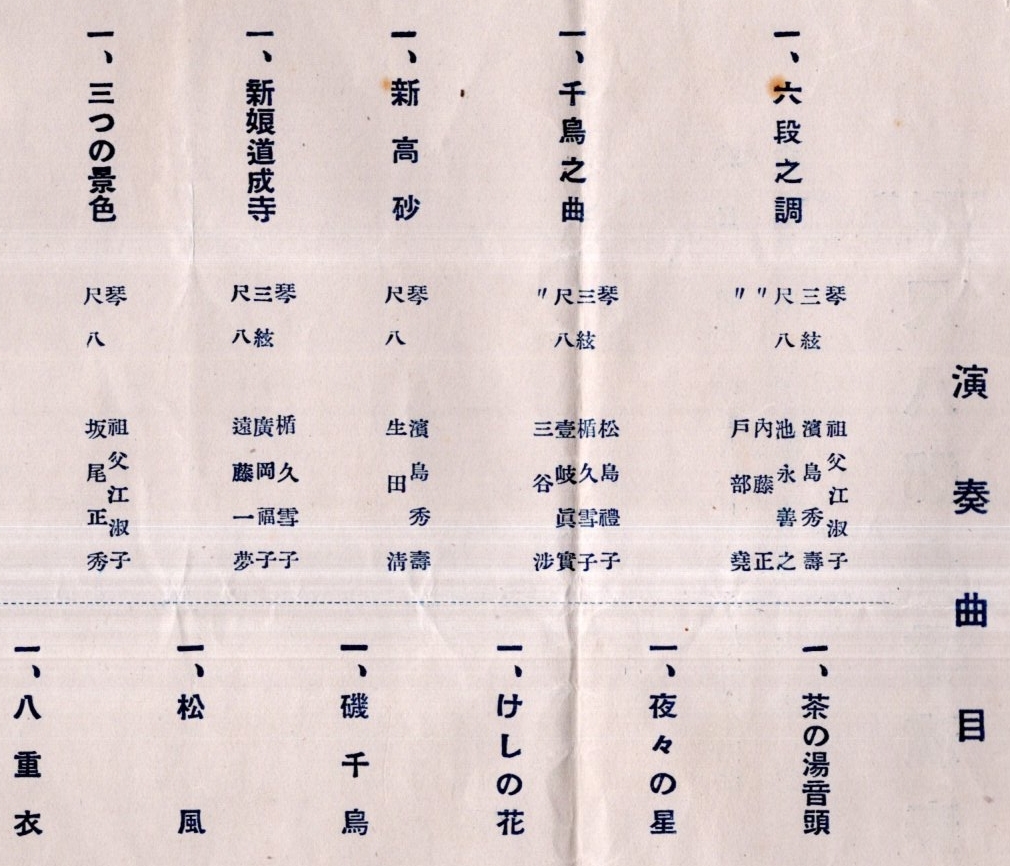 演奏曲目
一、六段之調
琴 祖父江淑子
三絃 濱島秀壽
尺八 池永善之
〃 内藤正
〃 戸部堯
一、千鳥之曲
琴 松島禮子
三絃 楯久雪子
尺八 壹岐眞實
〃 三谷渉
一、新高砂
琴 濱島秀壽
尺八 生田清
一、新娘道成寺
琴 楯久雪子
三絃 廣岡福子
尺八 遠藤一夢
一、三つの景色
琴 祖父江淑子
尺八 坂尾正秀
一、茶の湯音頭
一、夜々の星
一、けしの花
一、磯千鳥
一、松風
一、八重衣